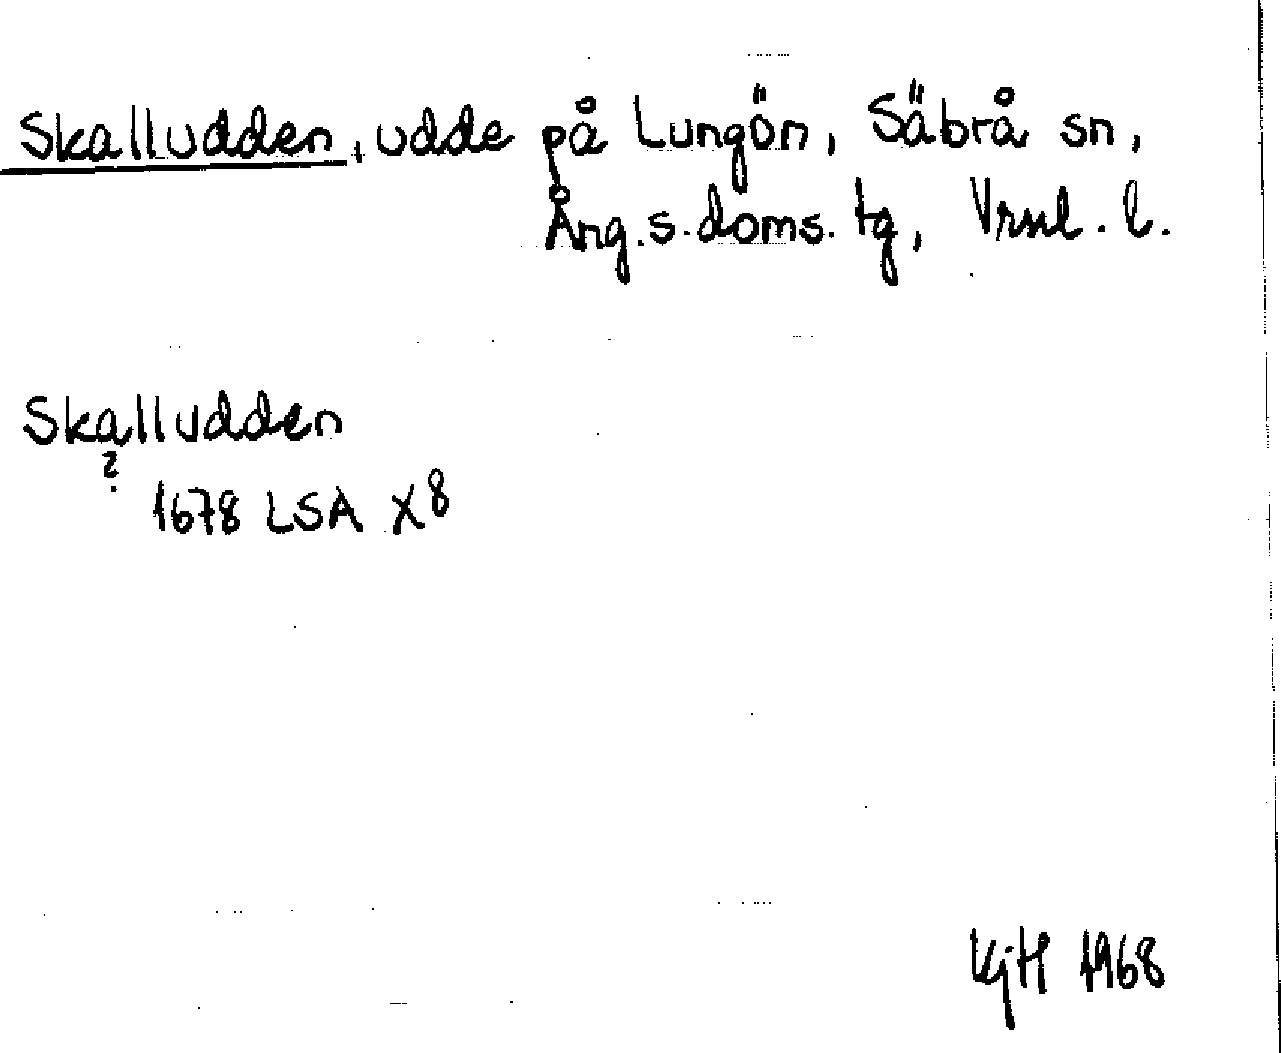 Skalludden, udde på Lungön, Säbrå sn,
Ång.s.doms.tg, Vrnl.l.
Skalludden
?
1678 LSA X8
KjH 1968